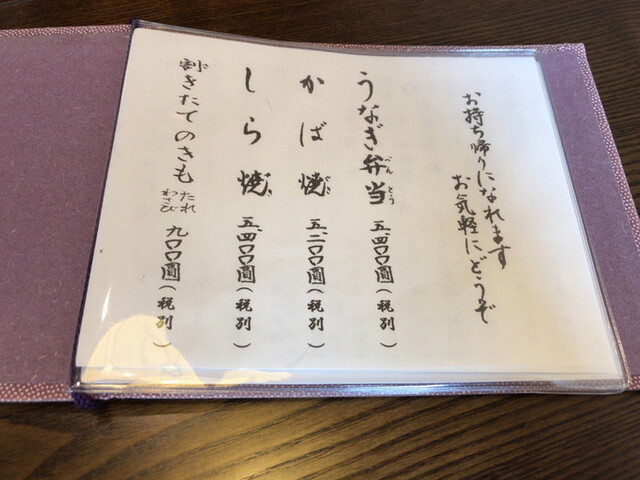 お持ち帰りになれます
お気軽にどうぞ
うなぎ弁当 五、四〇〇圓(税別)
かば焼 五、二〇〇圓(税別)
しら焼 五、四〇〇圓(税別)
割きたてのきも たれ わさび 九〇〇圓(税別)